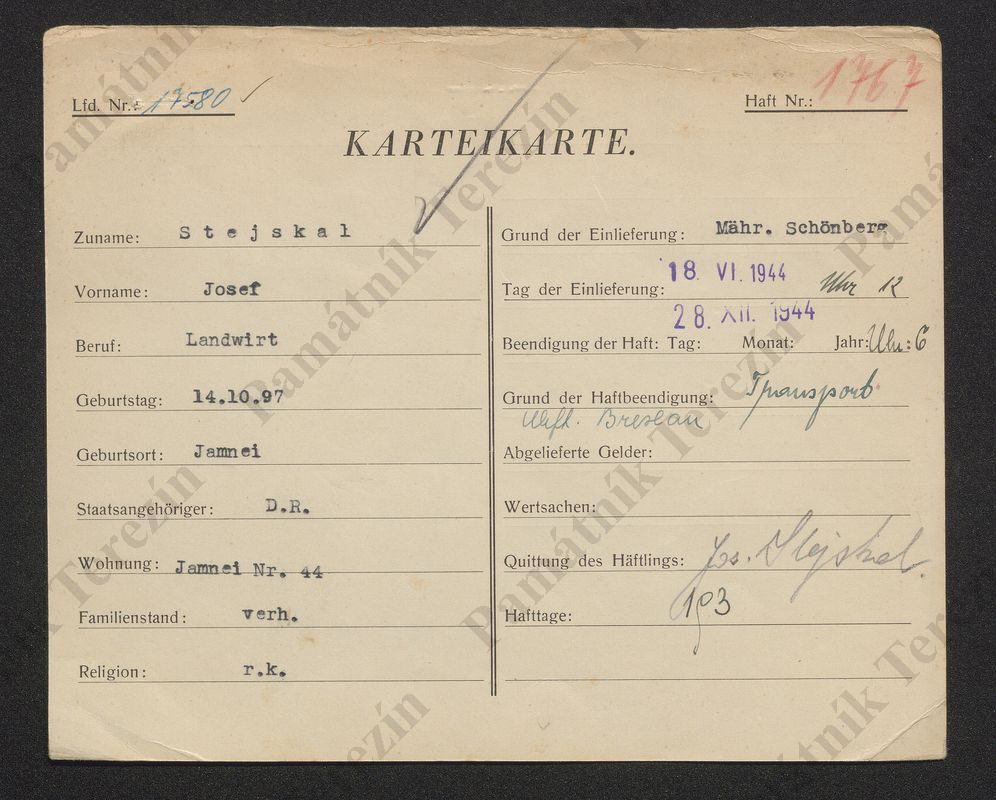 Lfd. Nr.: 17580
Haft Nr.: 1767
KARTEIKARTE.
Zuname: Stejskal
Vorname: Josef
Beruf: Landwirt
Geburtstag: 14.10.97
Geburtsort: Jamnei
Staatsangehöriger: D.R.
Wohnung: Jamnei Nr. 44
Familienstand: verh.
Religion: r.k.
Grund der Einlieferung: Mähr. Schönberg
Tag der Einlieferung: 18. VI. 1944 Uhr 12
28. XII. 1944
Beendigung der Haft: Tag: Monat: Jahr: Uhr: 6
Grund der Haftbeendigung: Transport
Breslau
Abgelieferte Gelder:
Wertsachen:
Quittung des Häftlings: Jos. Stejskal.
Hafttage: 193
Památník Terezín